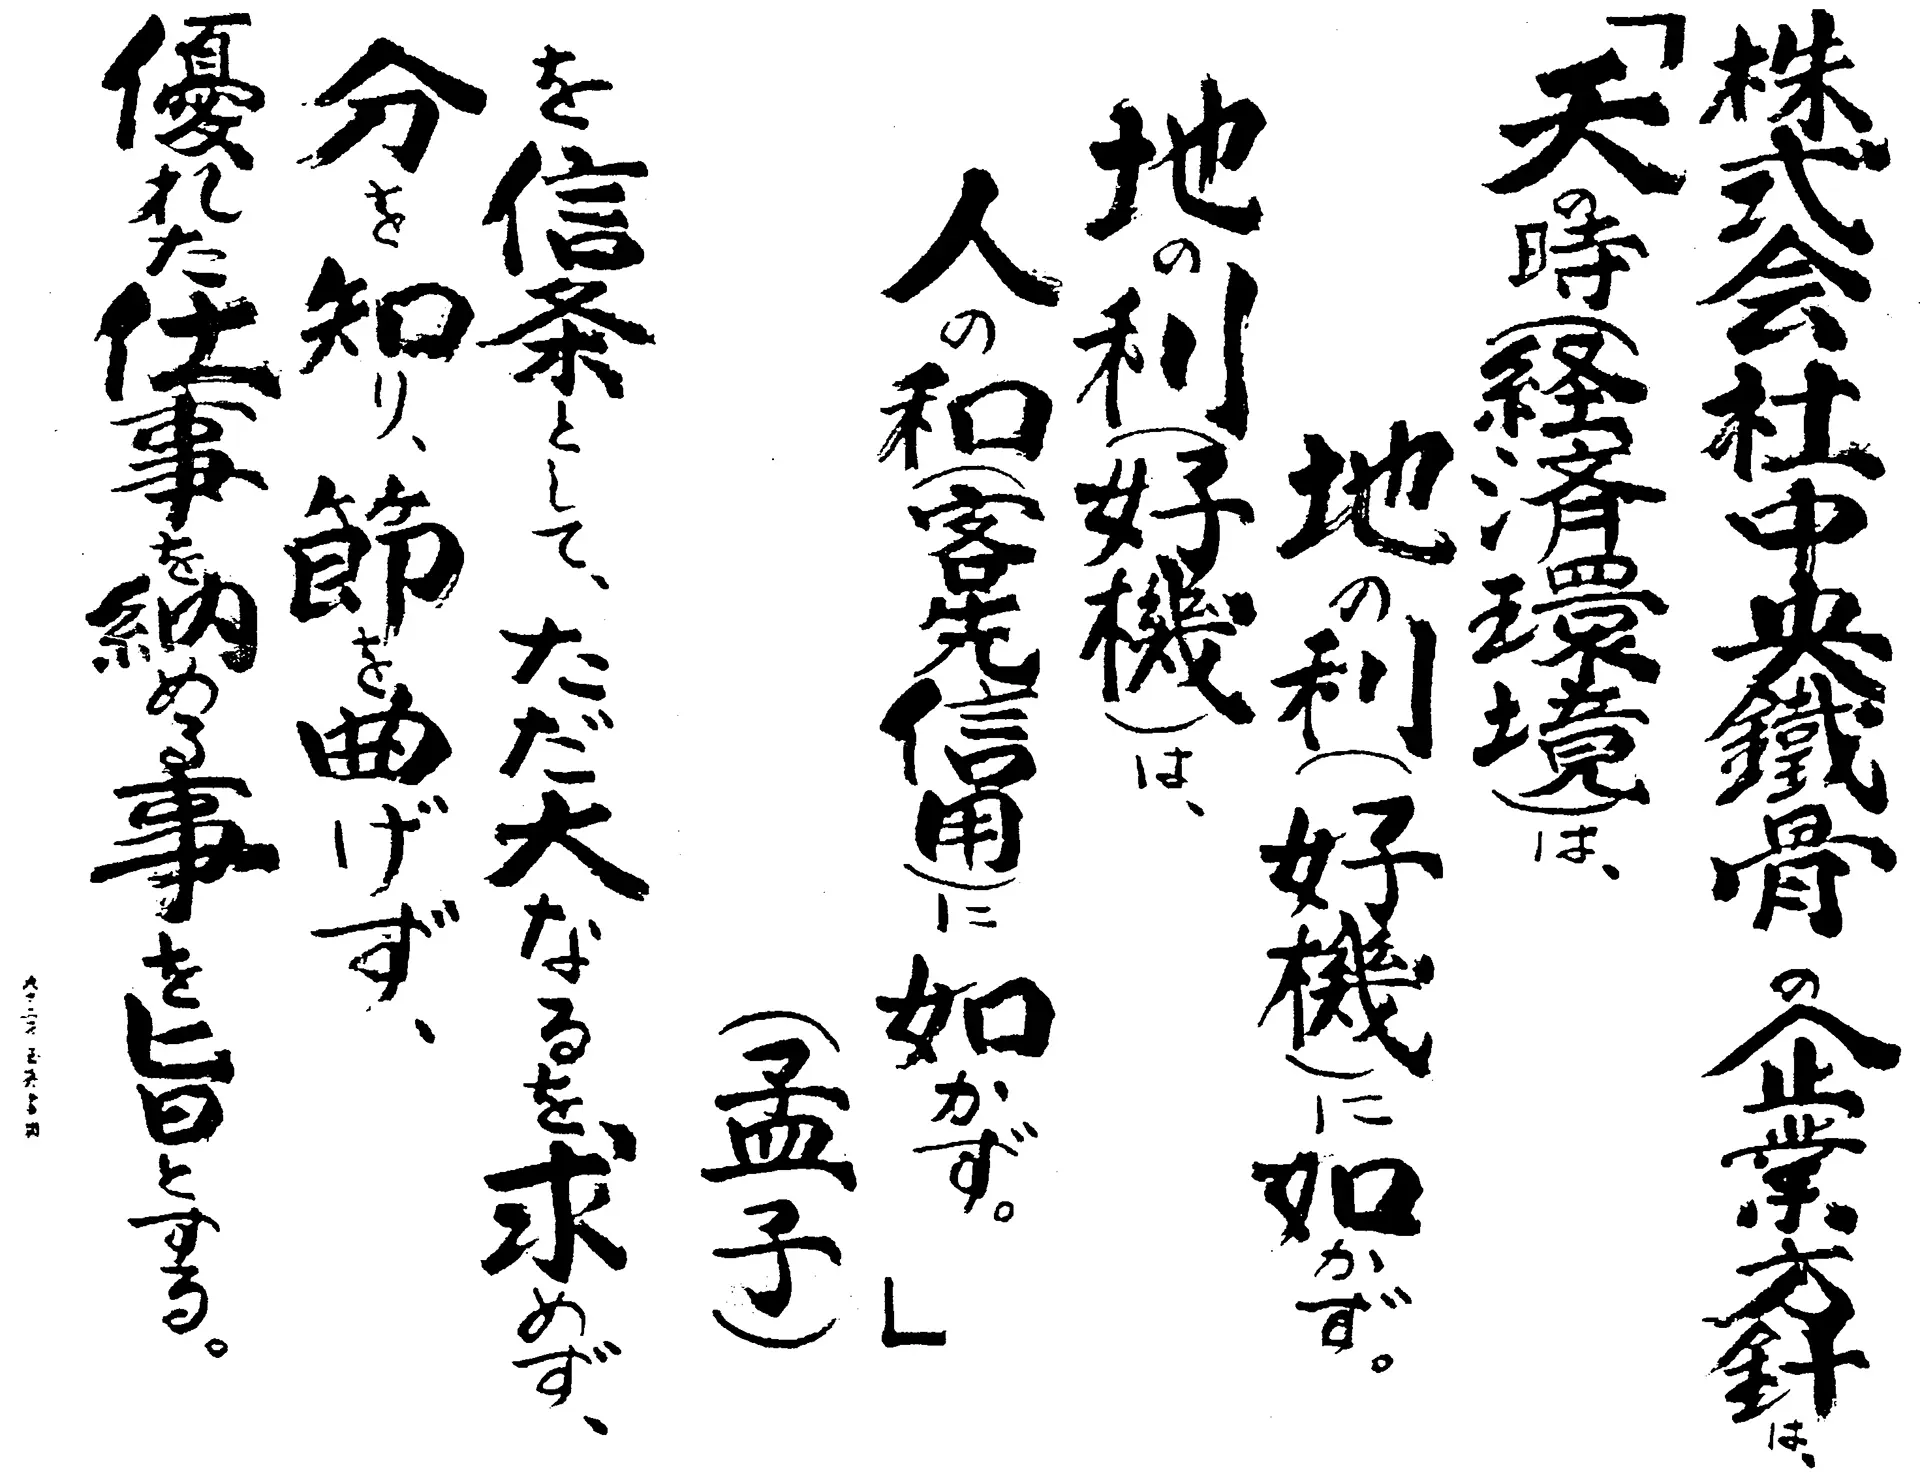 株式会社中央鐵骨の企業方針は、
「天の時(経済環境)は、
地の利(好機)に如かず。
地の利(好機)は、
人の和(客先信用)に如かず。」
(孟子)
を信条として、ただ大なるを、求めず、
分を知り、節を曲げず、
優れた仕事を納める事を旨とする。